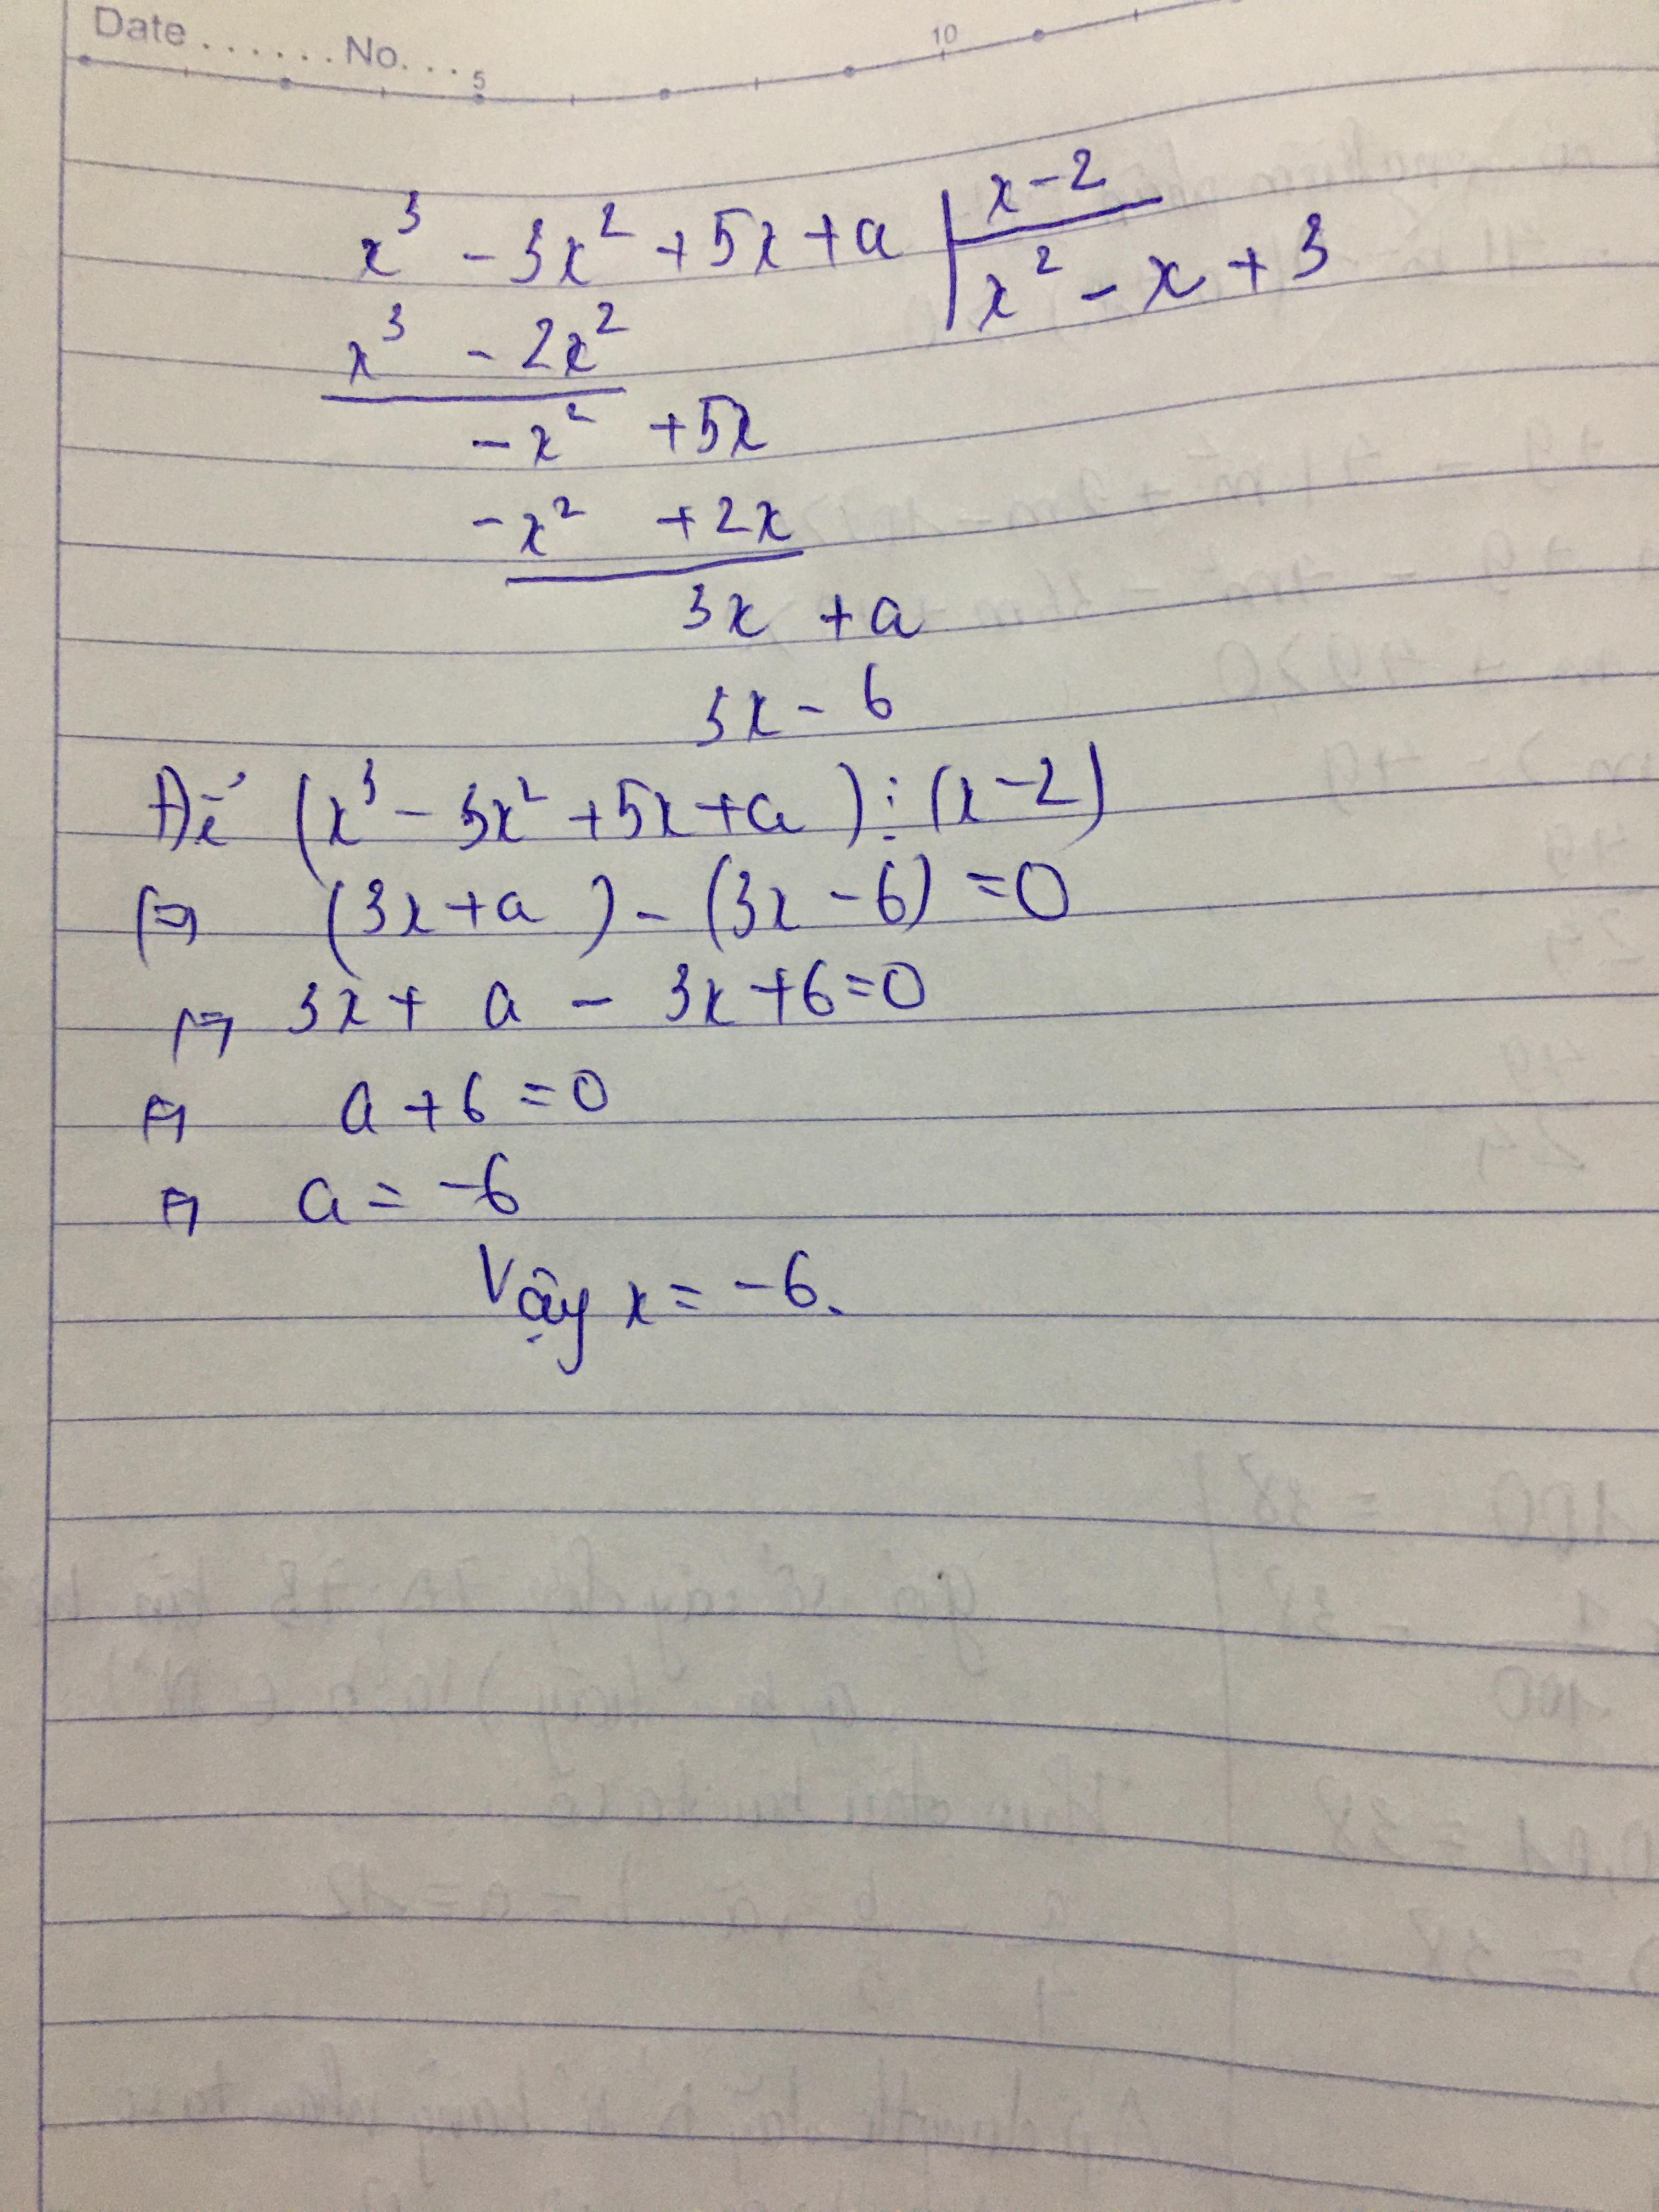 Date ...... No. ... 5 10
x³ - 3x² + 5x + a | x - 2
x² - x + 3
x³ - 2x²
-x² + 5x
-x² + 2x
3x + a
3x - 6
Để (x³ - 3x² + 5x + a) ⋮ (x - 2)
⇔ (3x + a) - (3x - 6) = 0
⇔ 3x + a - 3x + 6 = 0
⇔ a + 6 = 0
⇔ a = -6
Vậy x = -6.